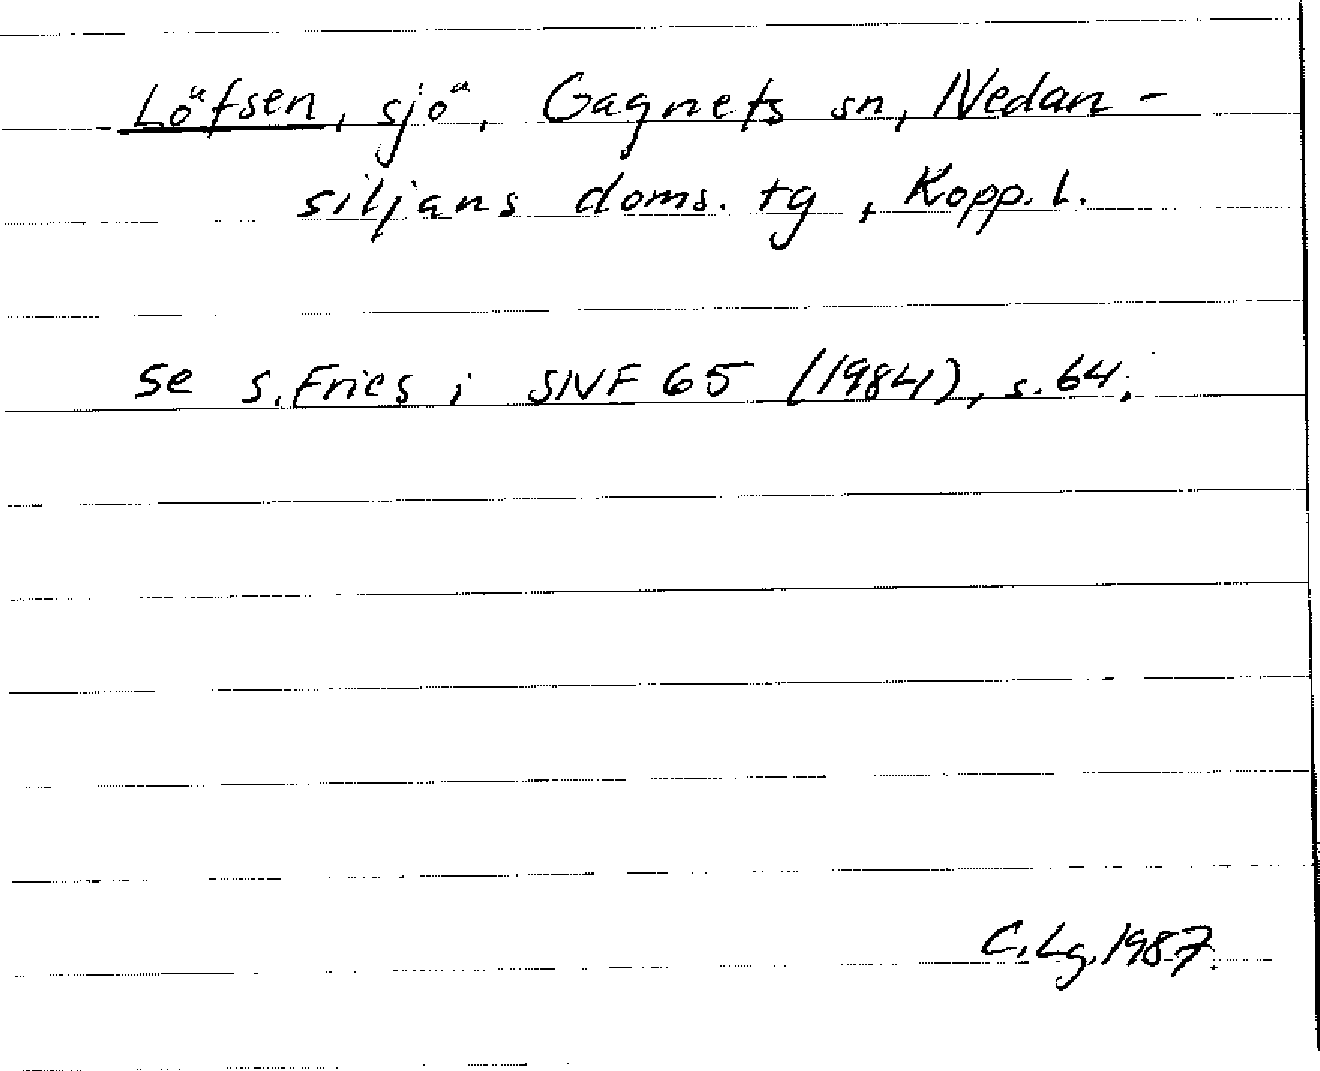 Löfsen, sjö, Gagnefs sn, Nedan-
siljans doms. tg, Kopp. l.
Se S. Fries i SNF 65 (1984), s. 64.
C. Lg. 1987.